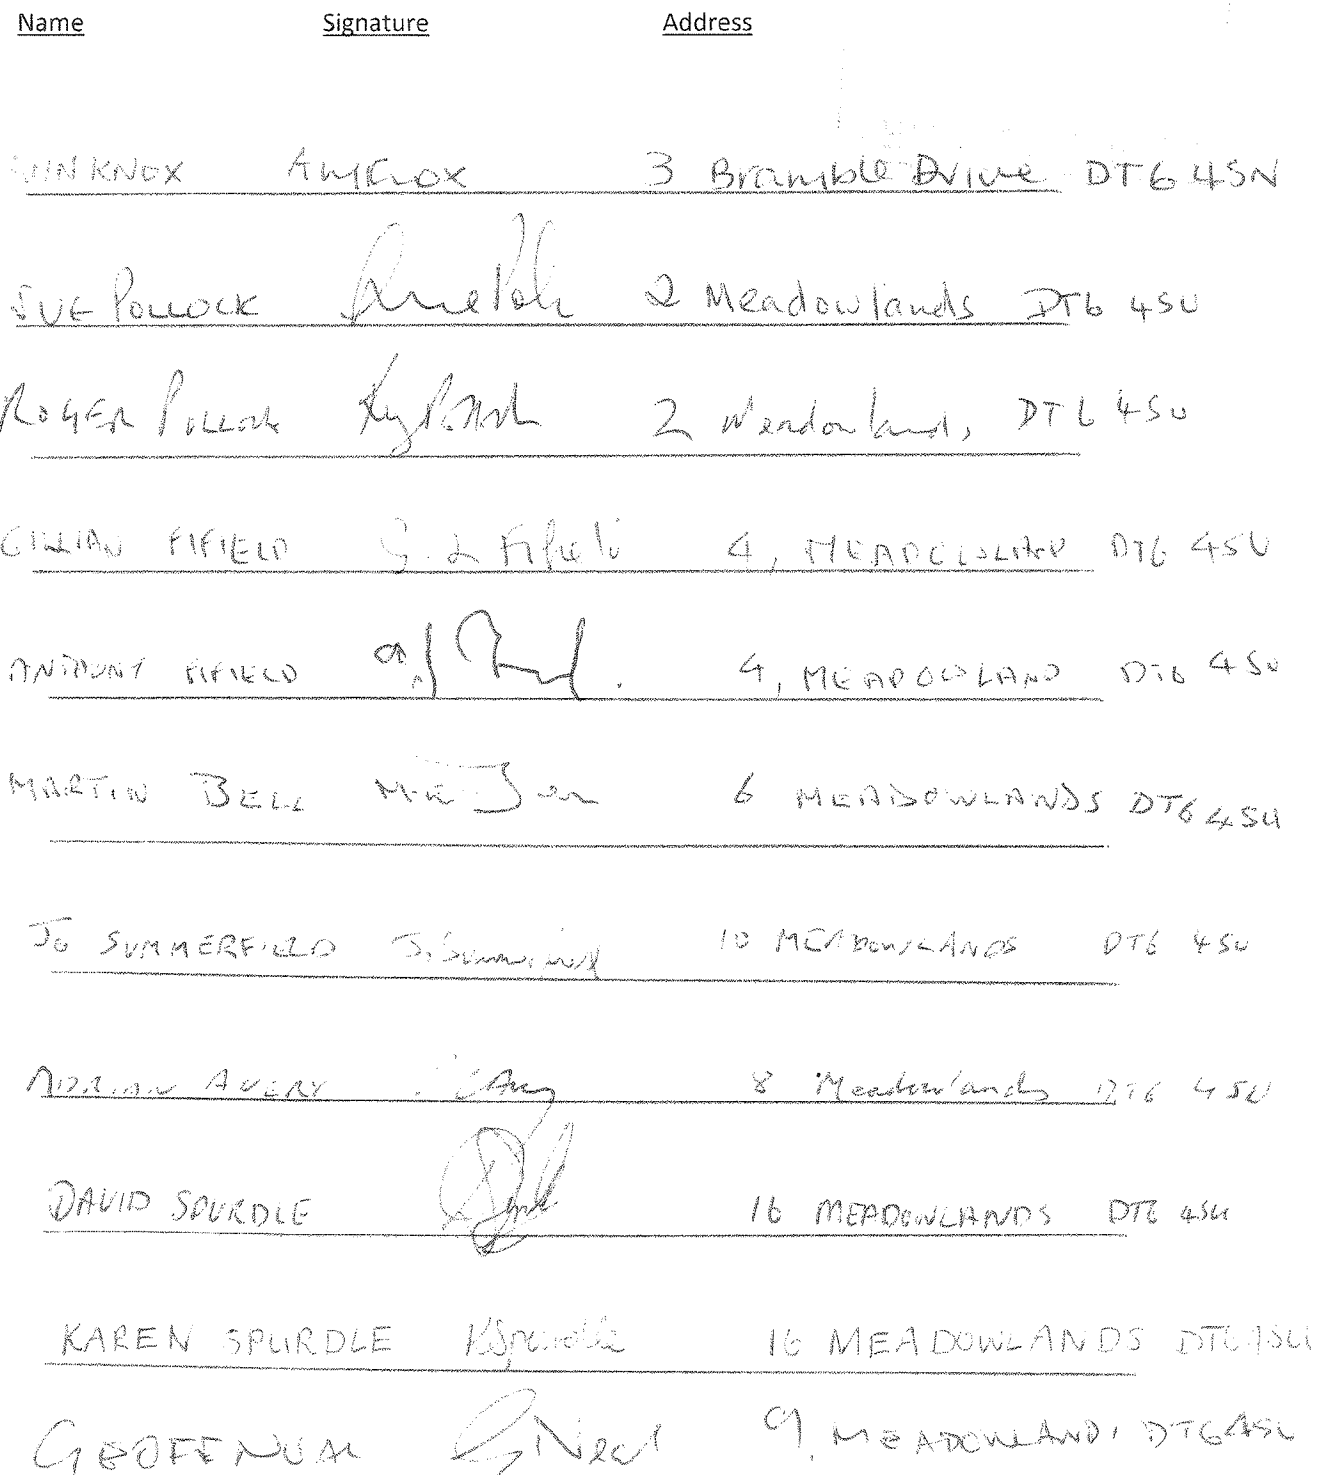 Name Signature Address
KNOX AMKnox 3 Bramble Drive DT6 4SN
SUE POLLOCK 2 Meadowlands DT6 4SU
ROGER POLLOCK 2 Meadowlands, DT6 4SU
GILLIAN FIFIELD G. L Fifield 4, MEADOWLAND DT6 4SU
ANTHONY FIFIELD 4, MEADOWLAND DT6 4SU
MARTIN BELL 6 MEADOWLANDS DT6 4SU
JO SUMMERFIELD J. Summerfield 10 MEADOWLANDS DT6 4SU
ADRIAN AVERY 8 Meadowlands DT6 4SU
DAVID SPURDLE 16 MEADOWLANDS DT6 4SU
KAREN SPURDLE KSpurdle 16 MEADOWLANDS DT6 4SU
GEOFF G Neal 9, MEADOWLANDS DT6 4SU